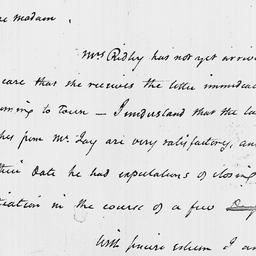 Madam.
Mrs Ridley has not yet
care that she receives the letter
to Town — I understand that the
from Mr. Jay are very satisfactory, and
their Date he had expectations of closing
in the course of a few Day
With sincere esteem I am